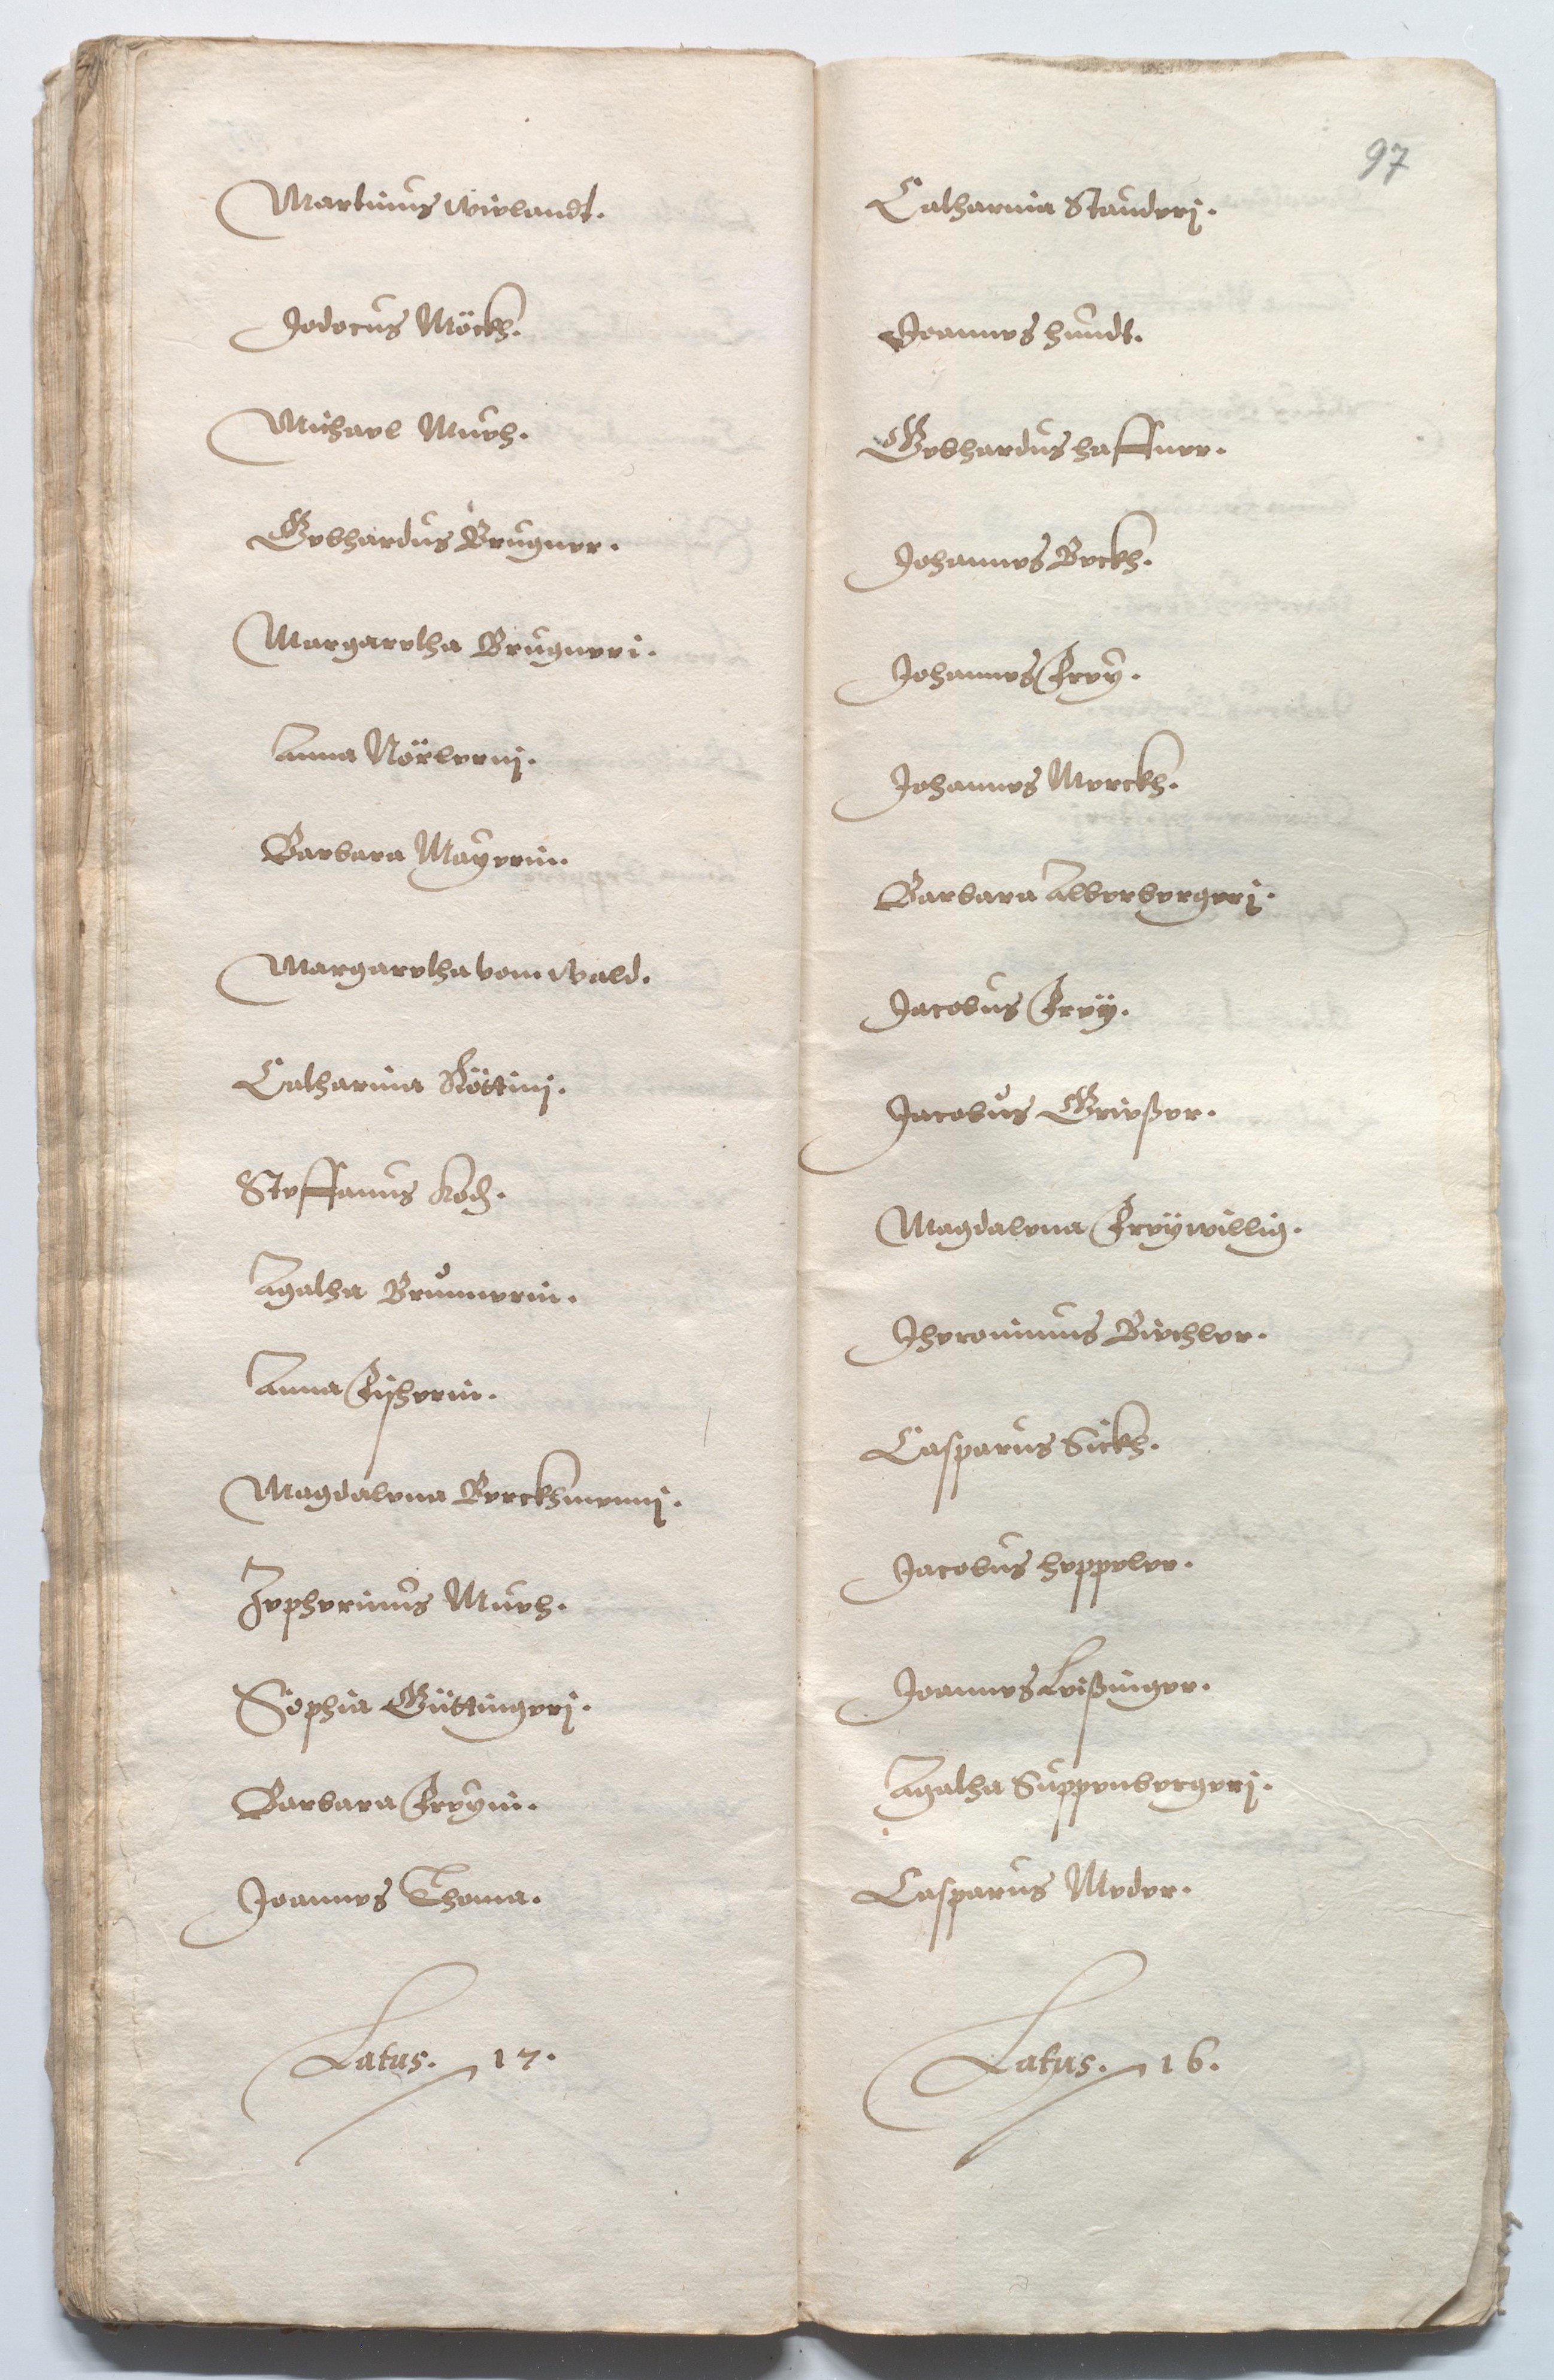 Martinus Wielandt.
Jodocus Möckh.
Michael Mueh.
Gebhardus Brugner.
Margaretha Brugneri.
Anna Nörlerni.
Barbara Mayerin.
Margaretha vom Wald.
Catharina Röttini.
Steffanus Koch.
Agatha Brunnerin.
Anna Fischerin.
Magdalena Berckhmenni.
Zepherinus Mueh.
Sophia Güttingeri.
Barbara Freyin.
Joannes Thoma.
Latus. 17.
97
Catharina Stauderj.
Joannes Hundt.
Gebhardus Haffner.
Johannes Beckh.
Johannes Frey.
Johannes Merckh.
Barbara Alberbergerj.
Jacobus Frey.
Jacobus Grießer.
Magdalena Freywillig.
Jheronimus Biechler.
Casparus Sickh.
Jacobus Heppeler.
Joannes Leißinger.
Agatha Suppenbergerj.
Casparus Meder.
Latus. 16.